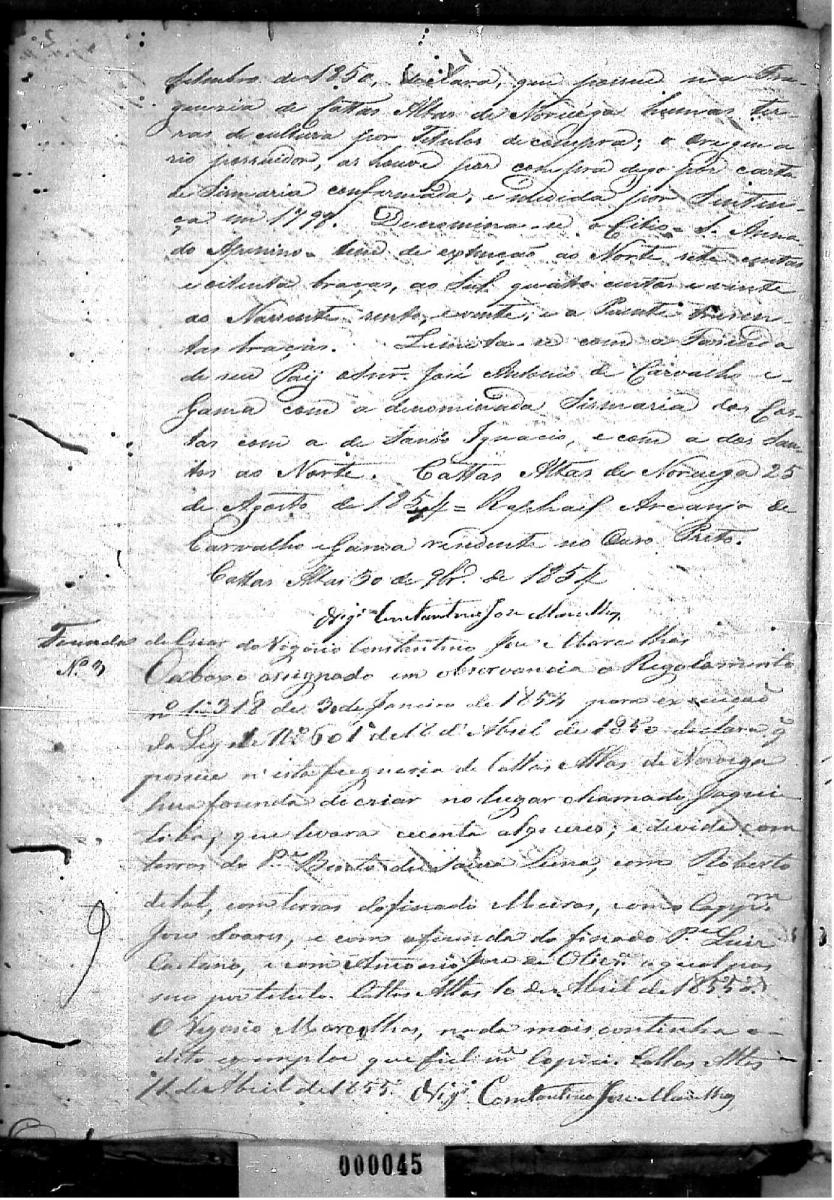 Setembro de 1850, declara, que possue na Fre-
guezia de Cattas Altas de Noruéga humas ter-
ras de cultura por Titulos de compra; o
rio possuidor, as houve por compra digo por carta
de Sismaria confirmada, e medida por Senten-
ça em 1798. Denomina-se o Citio = S. Anna
do = tem de extenção ao Norte sete centas
e oitenta braças, ao Sul quatro centas e vinte
ao Nascente cento e vinte, e a Poente trezen-
tas braças. Limita-se com a Fazenda
de seu Pay José Antonio de Carvalho e
Gama com a denominada Sismaria dos Cos-
tas com a de Santo Ignacio, e com a dos San-
tos ao Norte. Cattas Altas de Noruega 25
de Agosto de 1854 = Raphael Arcanjo de
Carvalho e Gama rezidente no Ouro Preto.
Cattas Altas 30 de 9br.º de 1854
Vigr.º Constantino Jose
Fazenda de Criar do Vigario Constantino Jose
N.º 3 O abaxo assignado em observancia o Regolamento
nº 1318 de 30 de Janeiro de 1854 para execução
da Ley de nº 601 de 18 d'Abril de 1850 declara q
possue n'esta freguezia de Cattas Altas de Noroega
hua fazenda de criar no lugar chamado
que levara cecenta alqueires; e devide com
terras do P.e Bento de Souza Lima, com Roberto
de tal, com terras do finado Meiras, com o Cap.m
Jose Soares, e com a fazenda do finado P.e Luis
Caetano, e com Antonio Jose de Oliv.ra a qual pos
sue por titulo. Cattas Altas 10 de Abril de 1855.
O Vigario nada mais continha o
dito exemplar que fiel m.te Copiei. Cattas Altas
11 de Abril de 1855. Vigr.º Constantino Jose
000045